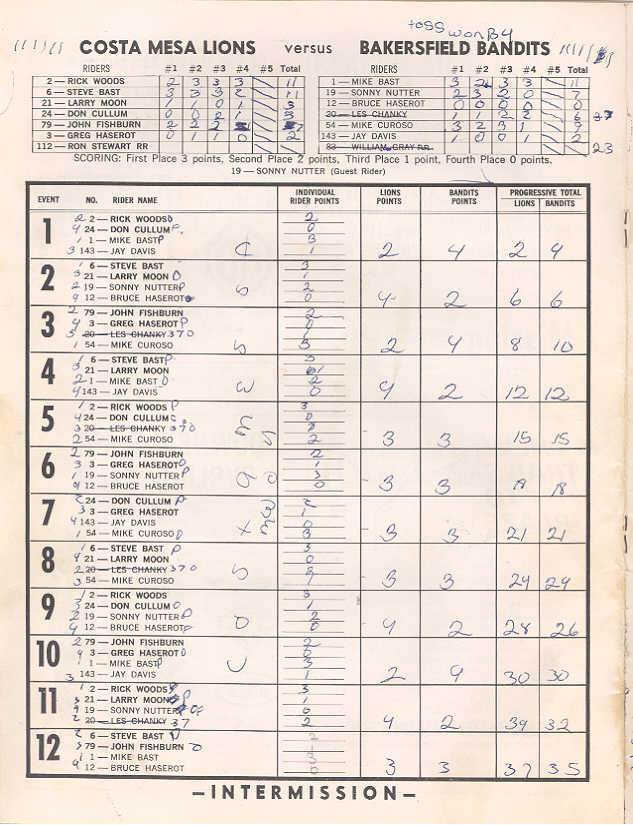 toss won By
COSTA MESA LIONS versus BAKERSFIELD BANDITS
RIDERS #1 #2 #3 #4 #5 Total RIDERS #1 #2 #3 #4 #5 Total
2 — RICK WOODS 2 3 3 3 11 1 — MIKE BAST 3 2 3 3 11
6 — STEVE BAST 3 3 3 2 11 19 — SONNY NUTTER 2 3 2 0 7
21 — LARRY MOON 1 1 0 1 3 12 — BRUCE HASEROT 0 0 0 0 0
24 — DON CULLUM 0 0 2 1 3 20 — LES CHANKY 1 1 2 2 6 37
79 — JOHN FISHBURN 2 2 2 7 54 — MIKE CUROSO 3 2 3 1 9
3 — GREG HASEROT 0 1 1 0 2 143 — JAY DAVIS 1 0 0 1 2
112 — RON STEWART RR 83 — WILLIAM GRAY RR 23
SCORING: First Place 3 points, Second Place 2 points, Third Place 1 point, Fourth Place 0 points.
19 — SONNY NUTTER (Guest Rider)
EVENT NO. RIDER NAME INDIVIDUAL RIDER POINTS LIONS POINTS BANDITS POINTS PROGRESSIVE TOTAL LIONS BANDITS
1
2 2 — RICK WOODS 2
4 24 — DON CULLUM 0
1 1 — MIKE BAST 3
3 143 — JAY DAVIS 1 2 4 2 4
2
1 6 — STEVE BAST 3
3 21 — LARRY MOON 1
2 19 — SONNY NUTTER 2
4 12 — BRUCE HASEROT 0 4 2 6 6
3
2 79 — JOHN FISHBURN 2
4 3 — GREG HASEROT 0
3 20 — LES CHANKY 370 1
1 54 — MIKE CUROSO 3 2 4 8 10
4
1 6 — STEVE BAST 3
3 21 — LARRY MOON 1
2 1 — MIKE BAST 2
4 143 — JAY DAVIS 0 4 2 12 12
5
1 2 — RICK WOODS 3
4 24 — DON CULLUM 0
3 20 — LES CHANKY 370
2 54 — MIKE CUROSO 2 3 3 15 15
6
2 79 — JOHN FISHBURN 2
3 3 — GREG HASEROT 1
1 19 — SONNY NUTTER 3
4 12 — BRUCE HASEROT 0 3 3 18 18
7
2 24 — DON CULLUM 2
3 3 — GREG HASEROT 1
4 143 — JAY DAVIS 0
1 54 — MIKE CUROSO 3 3 3 21 21
8
1 6 — STEVE BAST 3
4 21 — LARRY MOON 0
2 20 — LES CHANKY 370
3 54 — MIKE CUROSO 3 3 24 24
9
1 2 — RICK WOODS 3
3 24 — DON CULLUM 1
2 19 — SONNY NUTTER 2
4 12 — BRUCE HASEROT 0 4 2 28 26
10
2 79 — JOHN FISHBURN 2
4 3 — GREG HASEROT 0
1 1 — MIKE BAST 3
3 143 — JAY DAVIS 1 2 4 30 30
11
1 2 — RICK WOODS 3
3 21 — LARRY MOON 1
4 19 — SONNY NUTTER 0
2 20 — LES CHANKY 37 2 4 2 34 32
12
2 6 — STEVE BAST 2
3 79 — JOHN FISHBURN
1 1 — MIKE BAST 3
4 12 — BRUCE HASEROT 0 3 3 37 35
— INTERMISSION —